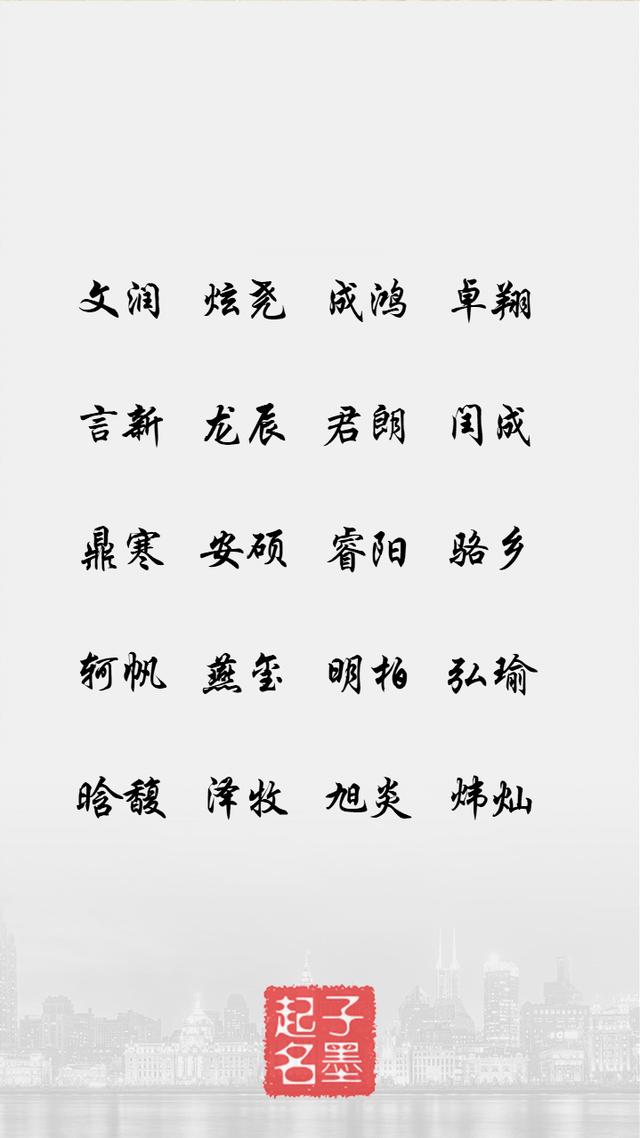 文润 炫尧 成鸿 卓翔
言新 龙辰 君朗 闰成
鼎寒 安硕 睿阳 骆乡
轲帆 燕玺 明柏 弘瑜
晗馥 泽牧 旭炎 炜灿
子墨
起名